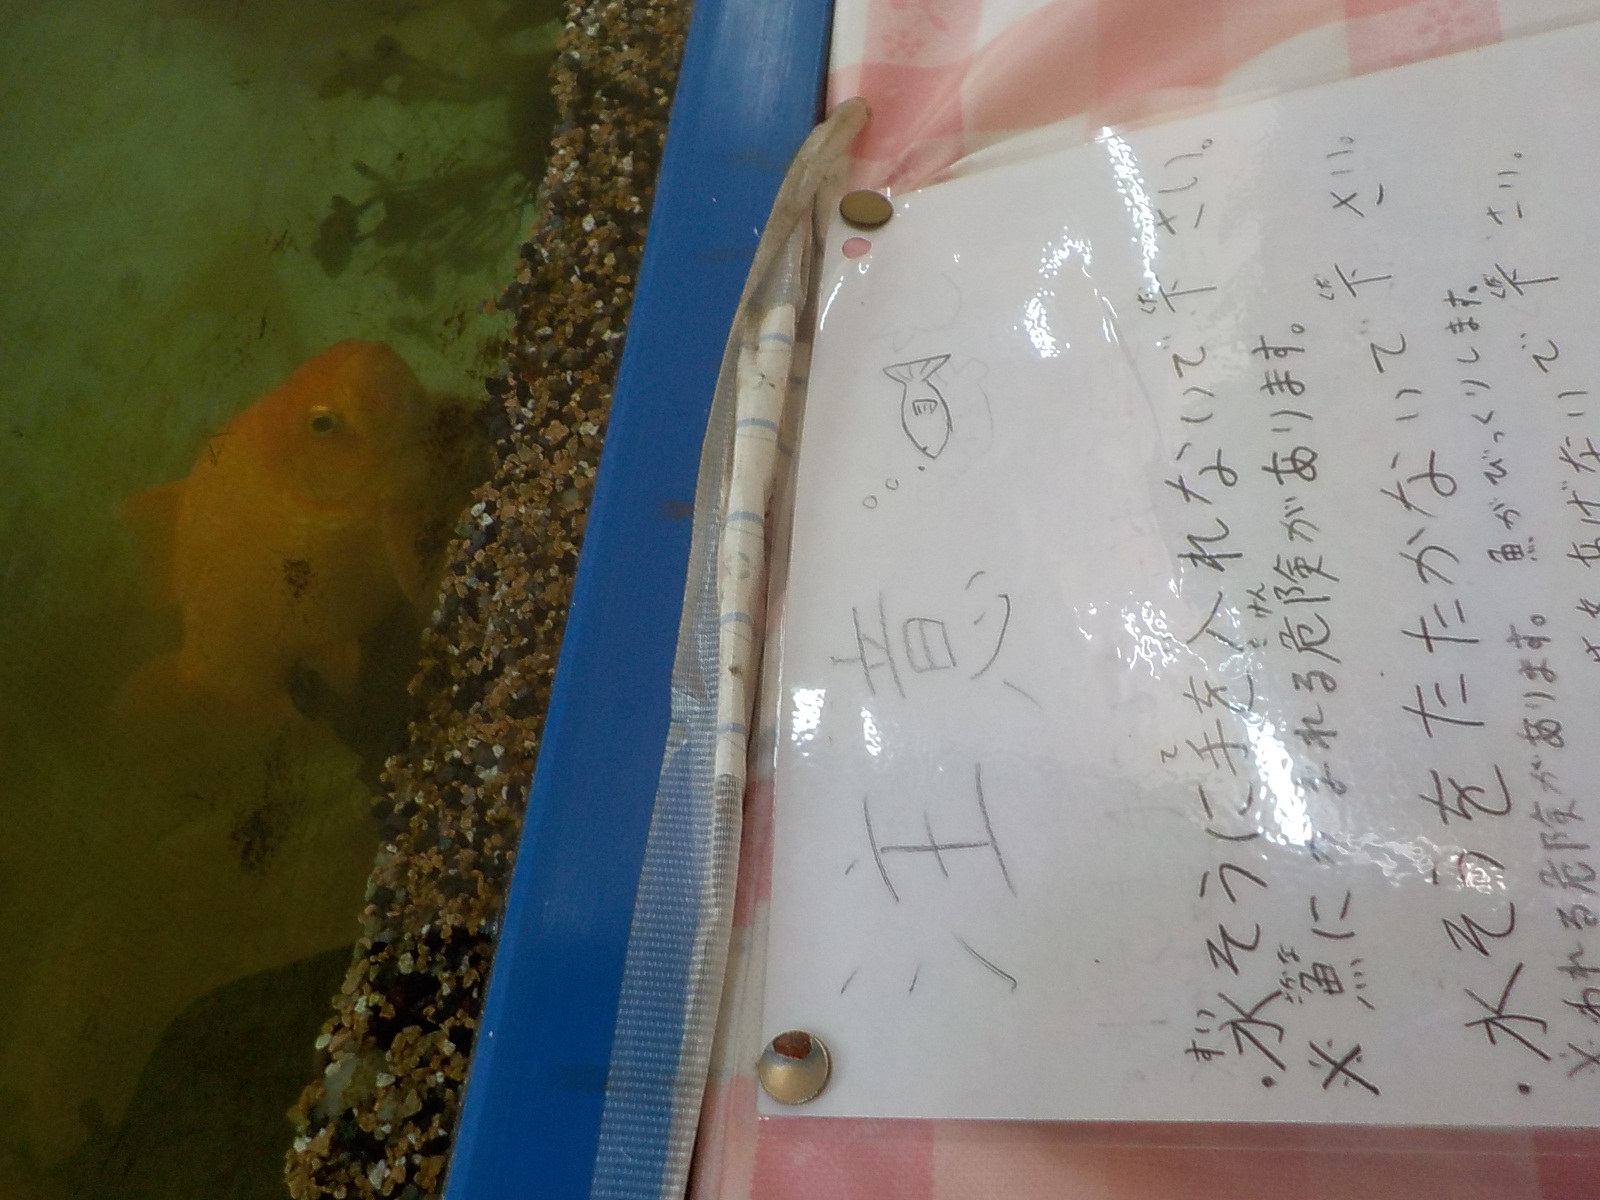 注意
・水そうに手を入れないで下さい。
※魚につかれる危険があります。
・水そうをたたかないで下さい。
※われる危険があります。魚がびっくりします。
をあげないで下さい。